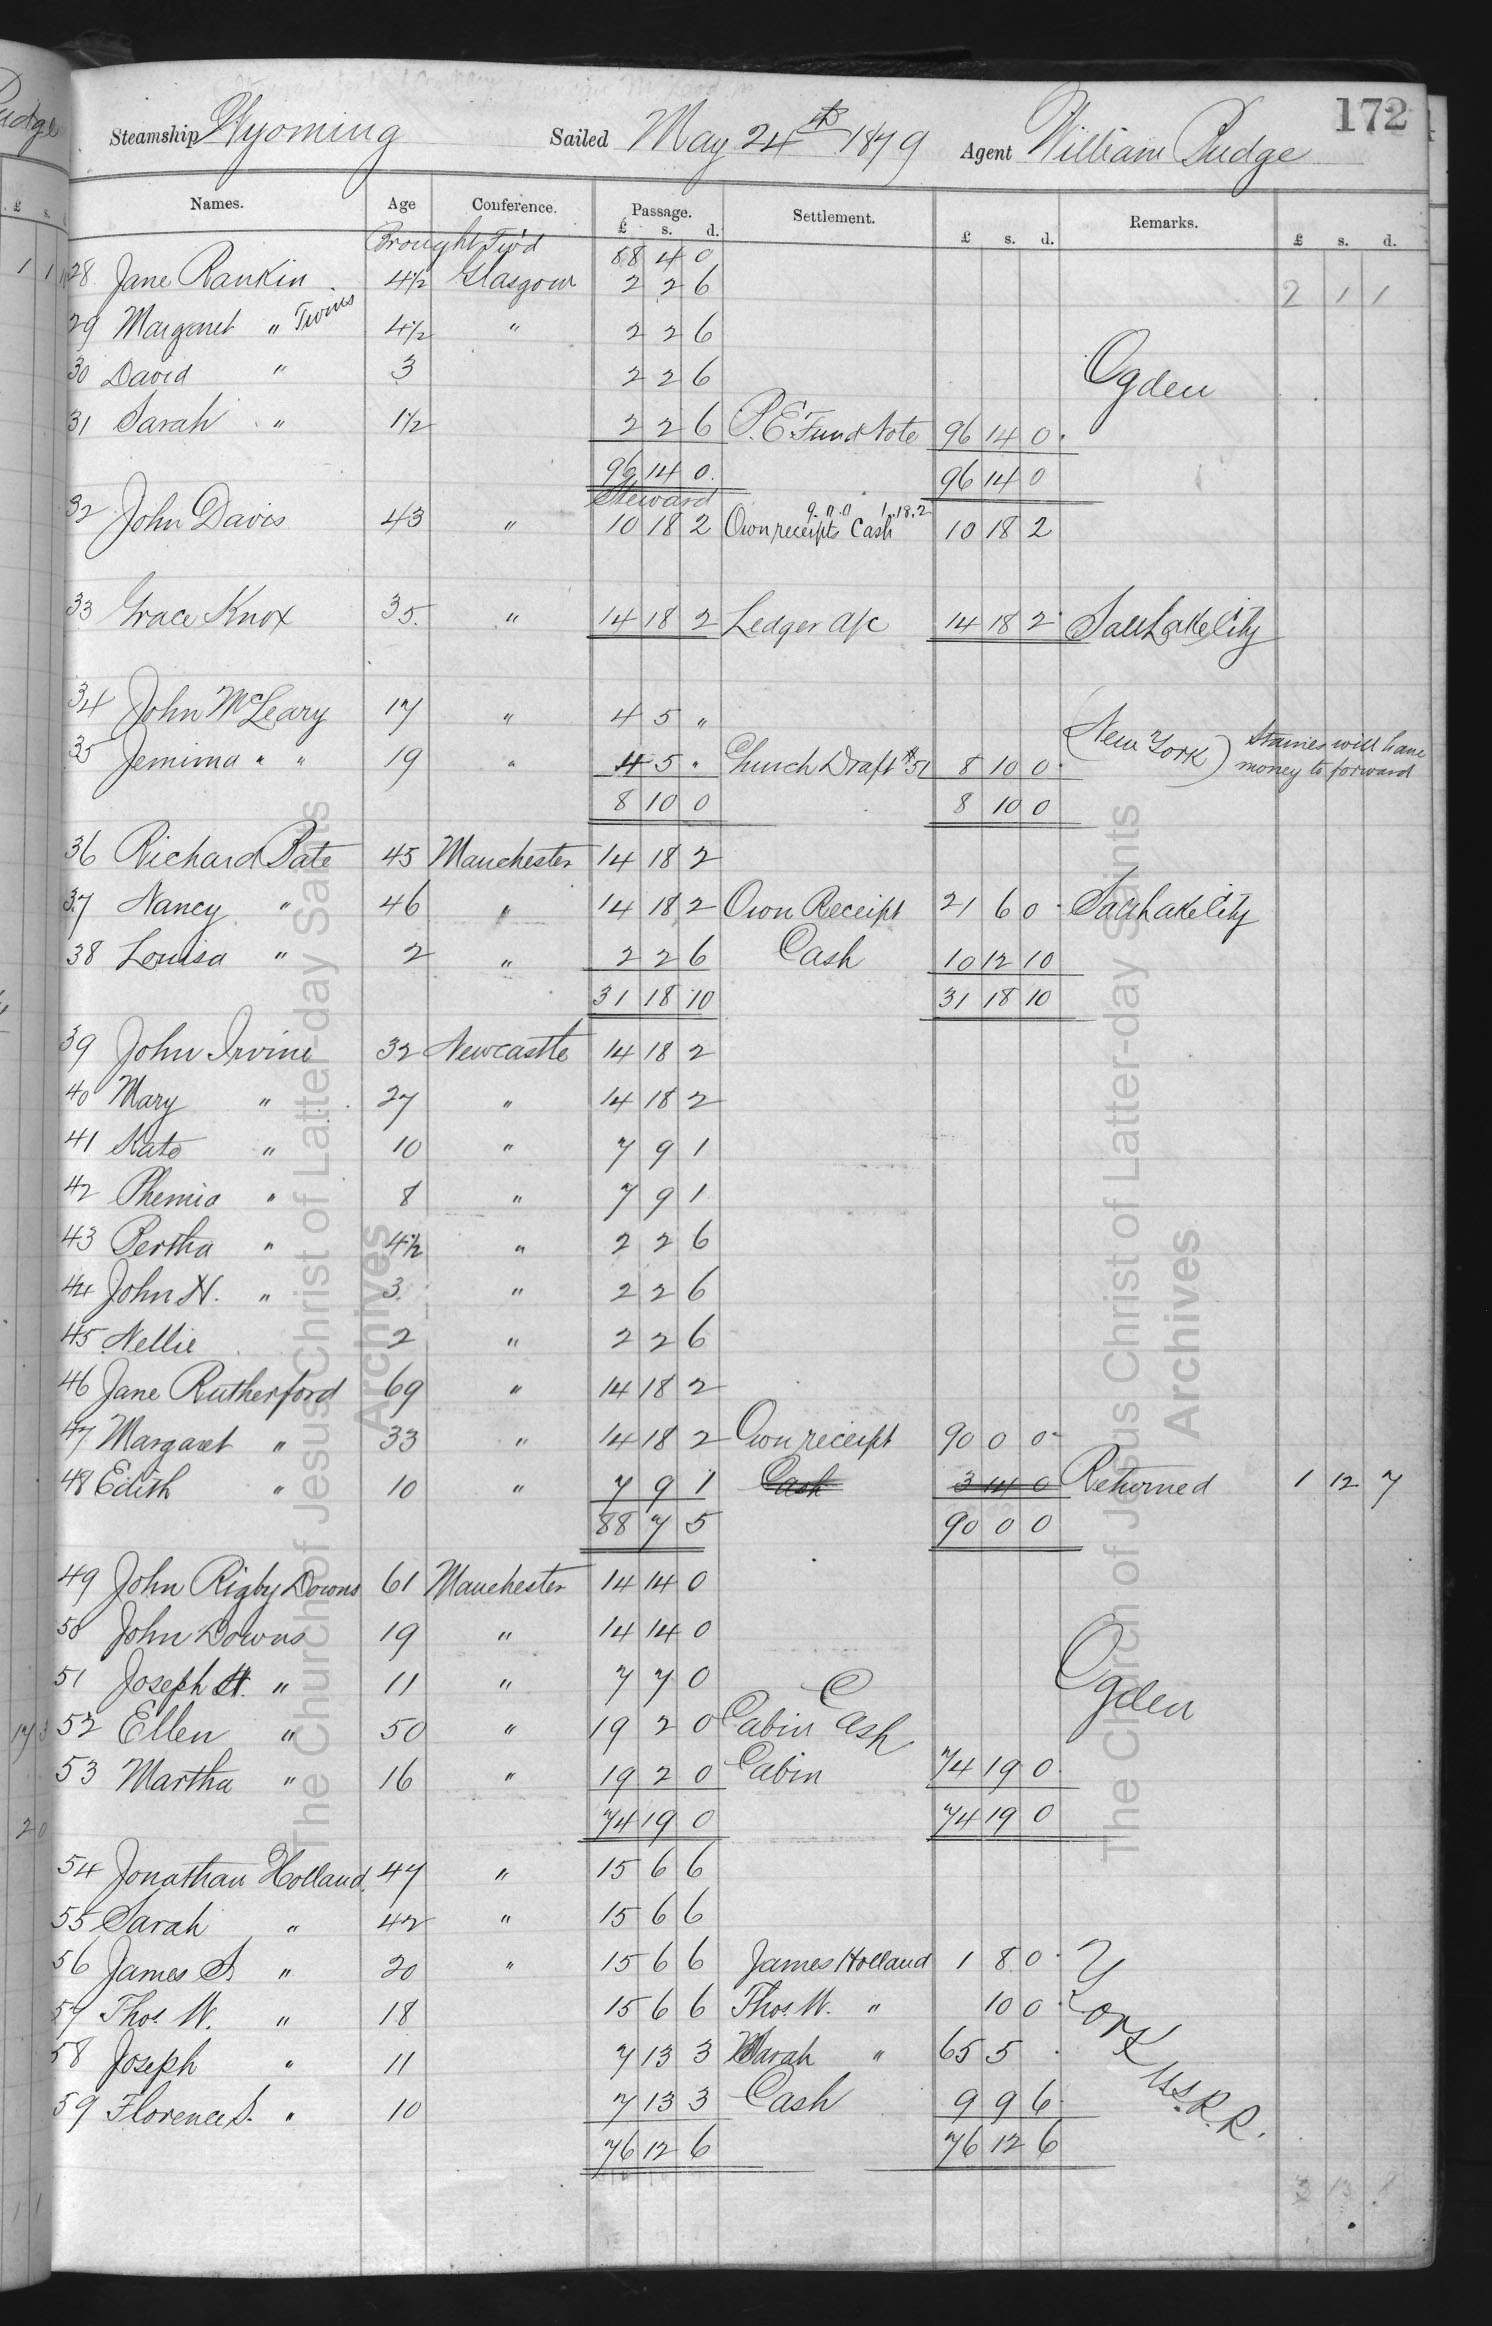 172
Steamship Wyoming Sailed May 24th 1879 Agent William Budge
Names. Age Conference. Passage. Settlement. Remarks.
£ s. d. £ s. d. £ s. d.
Brought Fw'd 88 4 0
28 Jane Rankin 4½ Glasgow 2 2 6 2 1 1
29 Margaret " Twins 4½ " 2 2 6
30 David " 3 2 2 6 Ogden
31 Sarah " 1½ 2 2 6 P.E. Fund Note 96 14 0
96 14 0 96 14 0
Steward 9.0.0 1.18.2
32 John Davis 43 " 10 18 2 Own receipts Cash 10 18 2
33 Grace Knox 35 " 14 18 2 Ledger a/c 14 18 2 Salt Lake City
34 John McLeary 17 " 4 5 "
35 Jemima " " 19 " 4 5 " Church Draft #51 8 10 0 (New York) Staines will have
money to forward
8 10 0 8 10 0
36 Richard Bate 45 Manchester 14 18 2
37 Nancy " 46 " 14 18 2 Own Receipt 21 6 0 Salt Lake City
38 Louisa " 2 " 2 2 6 Cash 10 12 10
31 18 10 31 18 10
39 John Irvine 32 Newcastle 14 18 2
40 Mary " 27 " 14 18 2
41 Kate " 10 " 7 9 1
42 Phemia " 8 " 7 9 1
43 Bertha " 4½ " 2 2 6
44 John H. " 3 " 2 2 6
45 Nellie 2 " 2 2 6
46 Jane Rutherford 69 " 14 18 2
47 Margaret " 33 " 14 18 2 Own receipt 90 0 0
48 Edith " 10 " 7 9 1 Cash 3 14 0 Returned 1 12 7
88 7 5 90 0 0
49 John Rigby Downs 61 Manchester 14 14 0
50 John Downs 19 " 14 14 0
51 Joseph H. " 11 " 7 7 0 Ogden
52 Ellen " 50 " 19 2 0 Cabin Cash
53 Martha " 16 " 19 2 0 Cabin 74 19 0
74 19 0 74 19 0
54 Jonathan Holland 47 " 15 6 6
55 Sarah " 42 " 15 6 6
56 James S. " 20 " 15 6 6 James Holland 1 8 0 York U.S.R.R.
57 Thos. W. " 18 15 6 6 Thos. W. " 10 0
58 Joseph " 11 7 13 3 Sarah " 65 5
59 Florence S. " 10 7 13 3 Cash 9 9 6
76 12 6 76 12 6
The Church of Jesus Christ of Latter-day Saints
Archives
The Church of Jesus Christ of Latter-day Saints
Archives